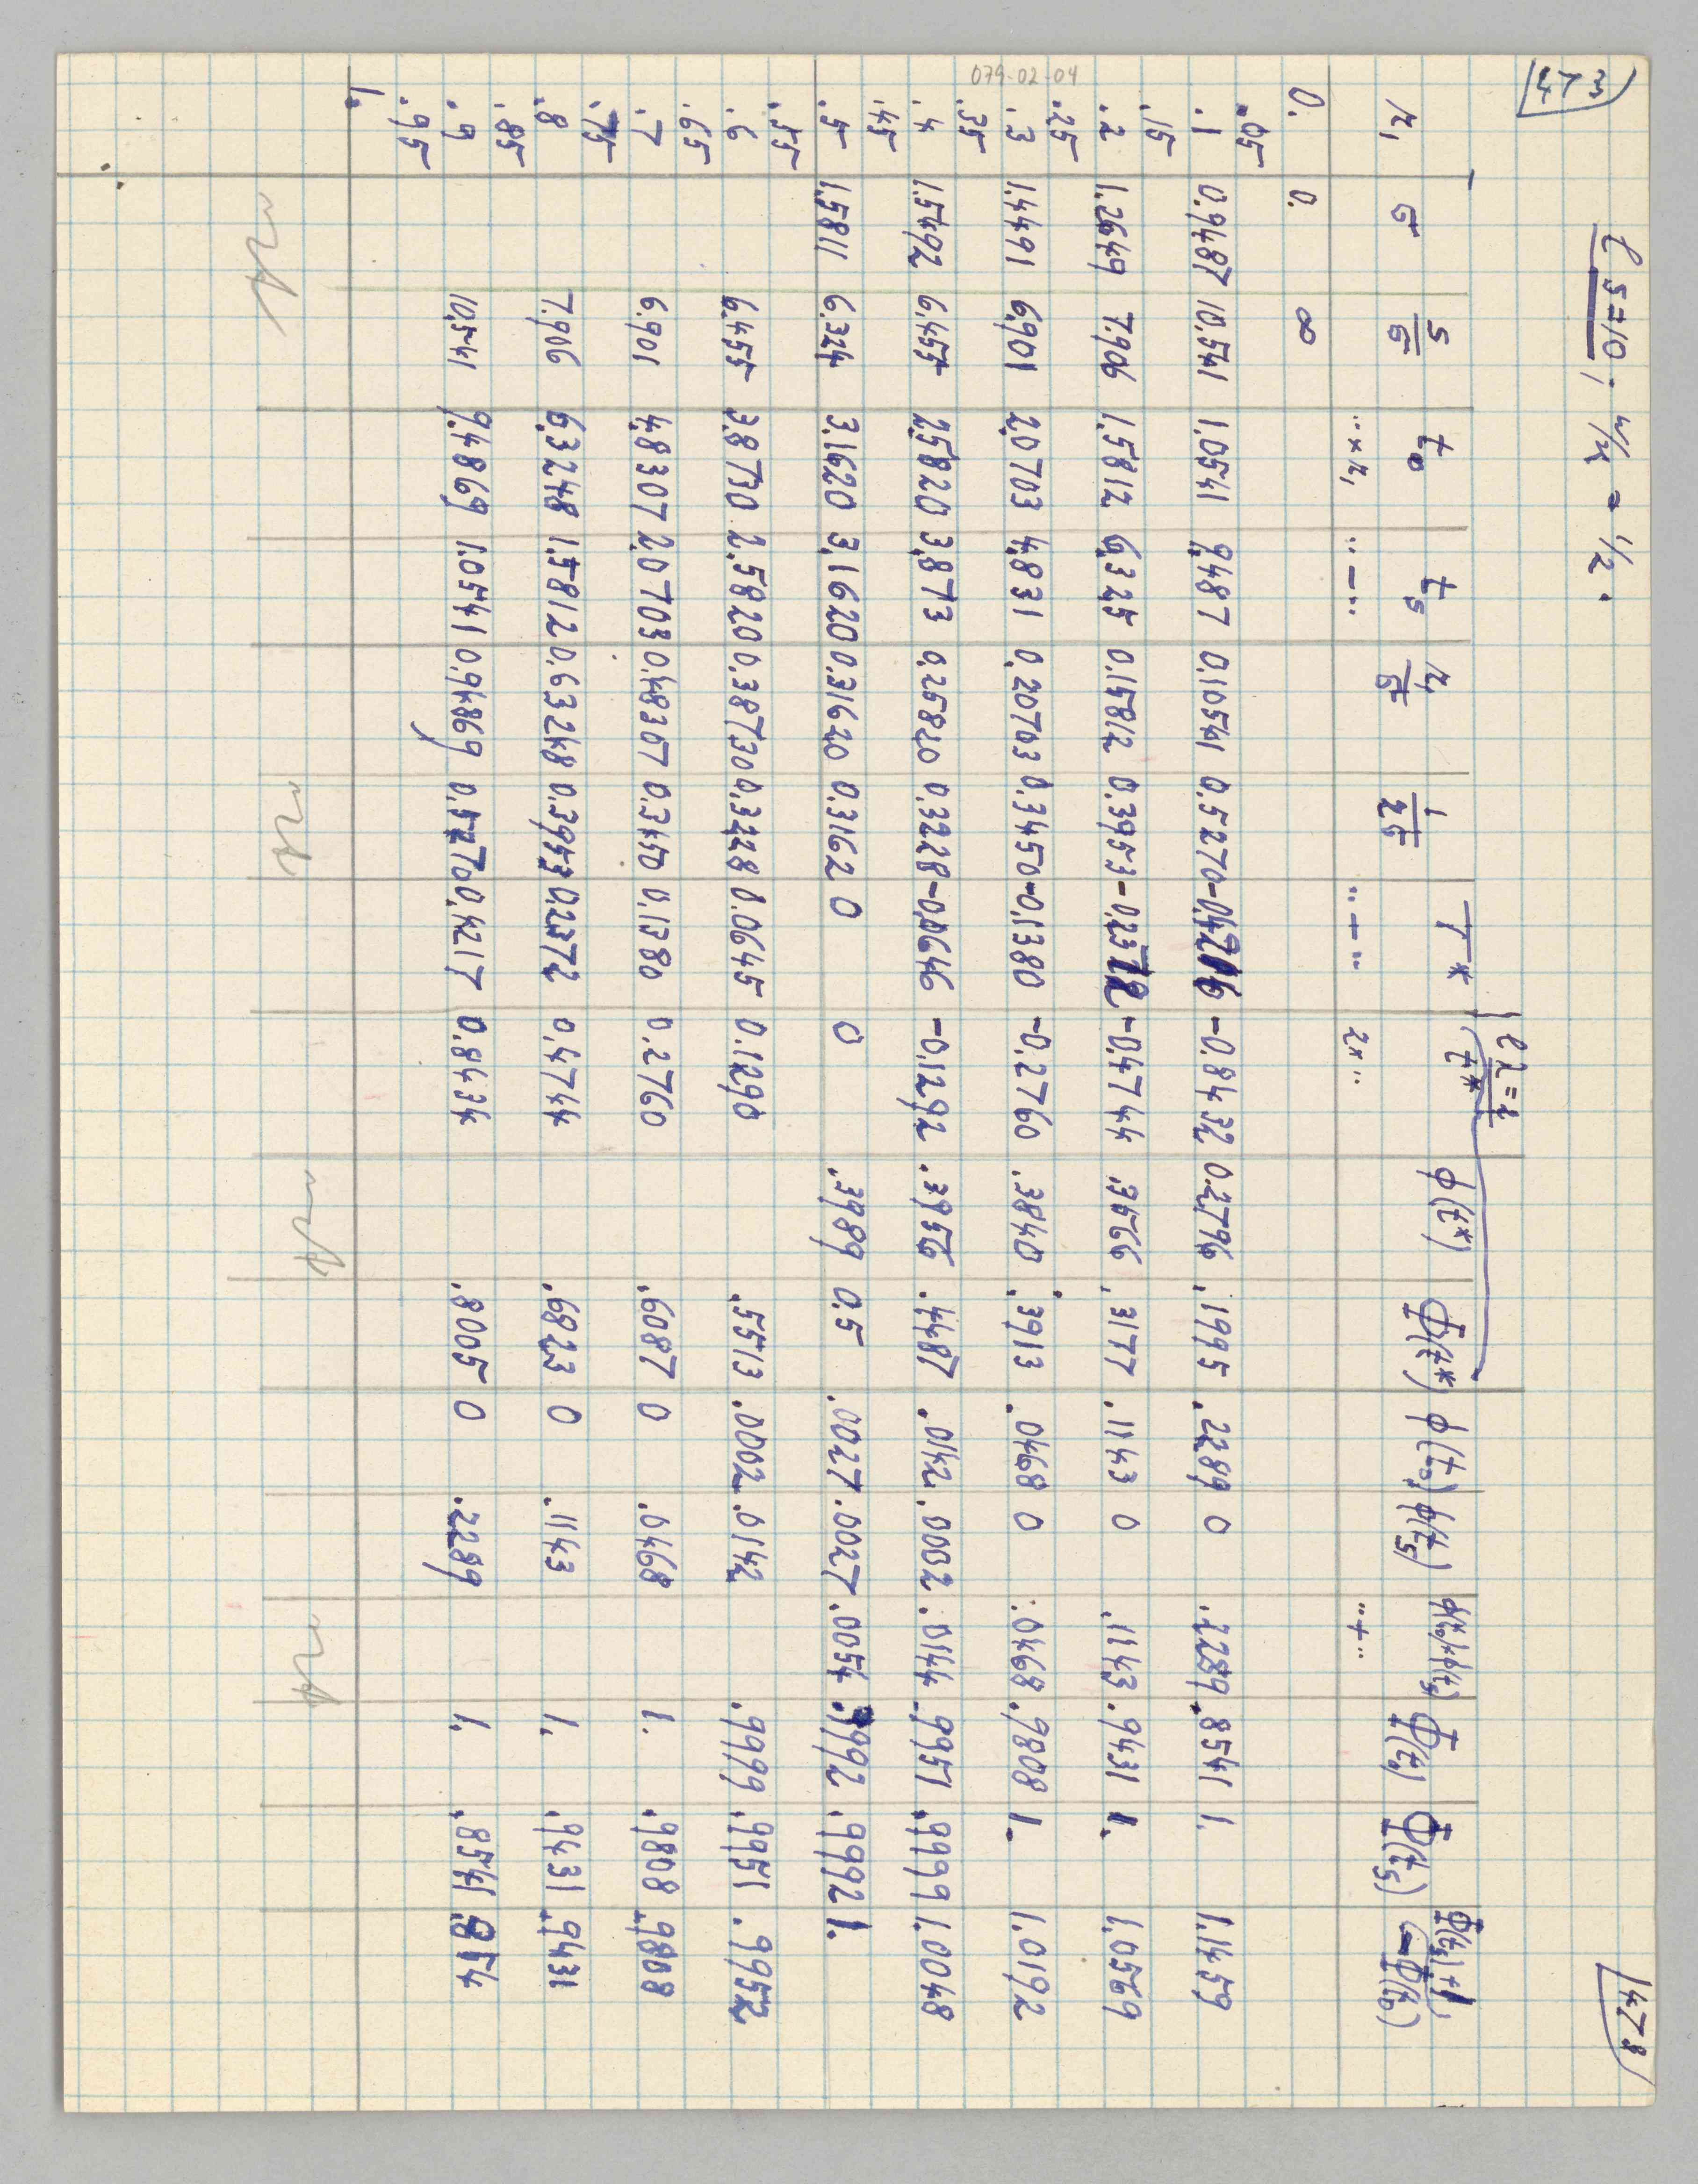 473
[s=10; w/r = 1/2.
1478
l λ = t/t*
r₁ σ s/σ t₀ tₛ r₁/σ 1/2σ T* t* φ(t*) Φ(t*) φ(t₀) φ(tₛ) φ(t₀)+φ(tₛ) Φ(t₀) Φ(tₛ) Φ(tₛ)+1-Φ(t₀)
"×r₁ "-" "-" 2×" "+"
0. 0. ∞
.05
.1 0.9487 10.541 1.0541 9.487 0.10541 0.5270 -0.4216 -0.8432 0.2796 .1995 .2289 0 .2289 .8541 1. 1.1459
.15
.2 1.2649 7.906 1.5812 6.325 0.15812 0.3953 -0.2372 -0.4744 .3566 .3177 .1143 0 .1143 .9431 1. 1.0569
.25
.3 1.4491 6.901 2.0703 4.831 0.20703 0.3450 -0.1380 -0.2760 .3840 .3913 .0468 0 .0468 .9808 1. 1.0192
.35
.4 1.5492 6.455 2.5820 3.873 0.25820 0.3228 -0.0646 -0.1292 .3956 .4487 .0142 .0002 .0144 .9951 .9999 1.0048
.45
.5 1.5811 6.324 3.1620 3.1620 0.31620 0.3162 0 0 .3989 0.5 .0027 .0027 .0054 .9992 .9992 1.
.55
.6 6.455 3.8730 2.5820 0.38730 0.3228 0.0645 0.1290 .5513 .0002 .0142 .9999 .9951 .9952
.65
.7 6.901 4.8307 2.0703 0.48307 0.3450 0.1380 0.2760 .6087 0 .0468 1. .9808 .9808
.75
.8 7.906 6.3248 1.5812 0.63248 0.3953 0.2372 0.4744 .6823 0 .1143 1. .9431 .9431
.85
.9 10.541 9.4869 1.0541 0.94869 0.5270 0.4217 0.8434 .8005 0 .2289 1. .8541 .854
.95
1.
079-02-04